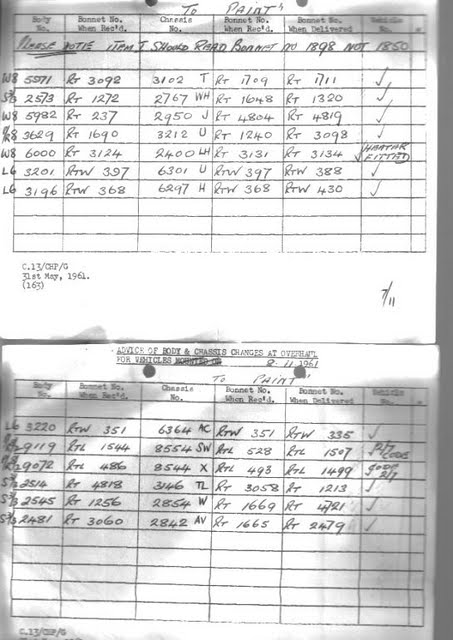 TO PAINT
Body No. Bonnet No. When Rec'd. Chassis No. Bonnet No. When Rec'd. Bonnet No. When Delivered Vehicle No.
PLEASE NOTE ITEM T SHOULD READ BONNET NO 1898 NOT 1850
W8 5571 RT 3092 3102 T RT 1709 RT 1711 ✓
S3/3 2573 RT 1272 2767 WH RT 1648 RT 1320 ✓
W8 5982 RT 237 2950 J RT 4804 RT 4819 ✓
3629 RT 1690 3212 U RT 1240 RT 3098 ✓
W8 6000 RT 3124 2400 LH RT 3131 RT 3134 ✓ HEATER FITTED
L6 3201 RTW 397 6301 U RTW 397 RTW 388 ✓
L6 3196 RTW 368 6297 H RTW 368 RTW 430 ✓
C.13/CHP/G
31st May, 1961.
(163)
7/11
ADVICE OF BODY & CHASSIS CHANGES AT OVERHAUL
FOR VEHICLES MOUNTED ON 8-11-1961
TO PAINT
Body No. Bonnet No. When Rec'd. Chassis No. Bonnet No. When Rec'd. Bonnet No. When Delivered Vehicle No.
L6 3220 RTW 351 6364 AC RTW 351 RTW 335 ✓
9119 RTL 1544 8554 SW RTL 528 RTL 1507
9072 RTL 486 8544 X RTL 493 RTL 1499
S3/3 2514 RT 4818 3146 TL RT 3058 RT 1213 ✓
S3/3 2545 RT 1256 2854 W RT 1669 RT 4721 ✓
S3/3 2481 RT 3060 2842 AV RT 1665 RT 2479 ✓
C.13/CHP/G